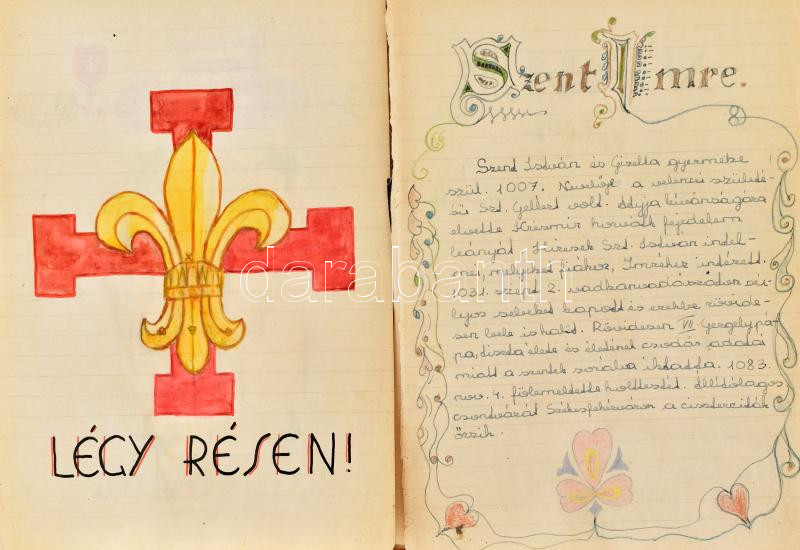 LÉGY RÉSEN!
Szent Imre.
Szend István és Gizella gyermeke
szül. 1007. Nevelője a velencei születé-
sű Szt. Gellért volt. Atyja kívánságára
elvette Kresmir horváth fejedelem
leányát. Híresek Szt. István intel-
mei, melyeket fiához, Imréhez intézett.
1031. szept 2. vadkanvadászaton sú-
lyos sebeket kapott és ezekbe rövide-
sen bele is halt. Rövidesen VII. Gergely pá-
pa, tiszta élete és életének csodás adatai
miatt a szentek sorába iktatta. 1083.
nov. 4. fölemeltette holttestét. Állítólagos
csontvázát Székesfehérváron a ciszterciták
őrzik.
darabanth